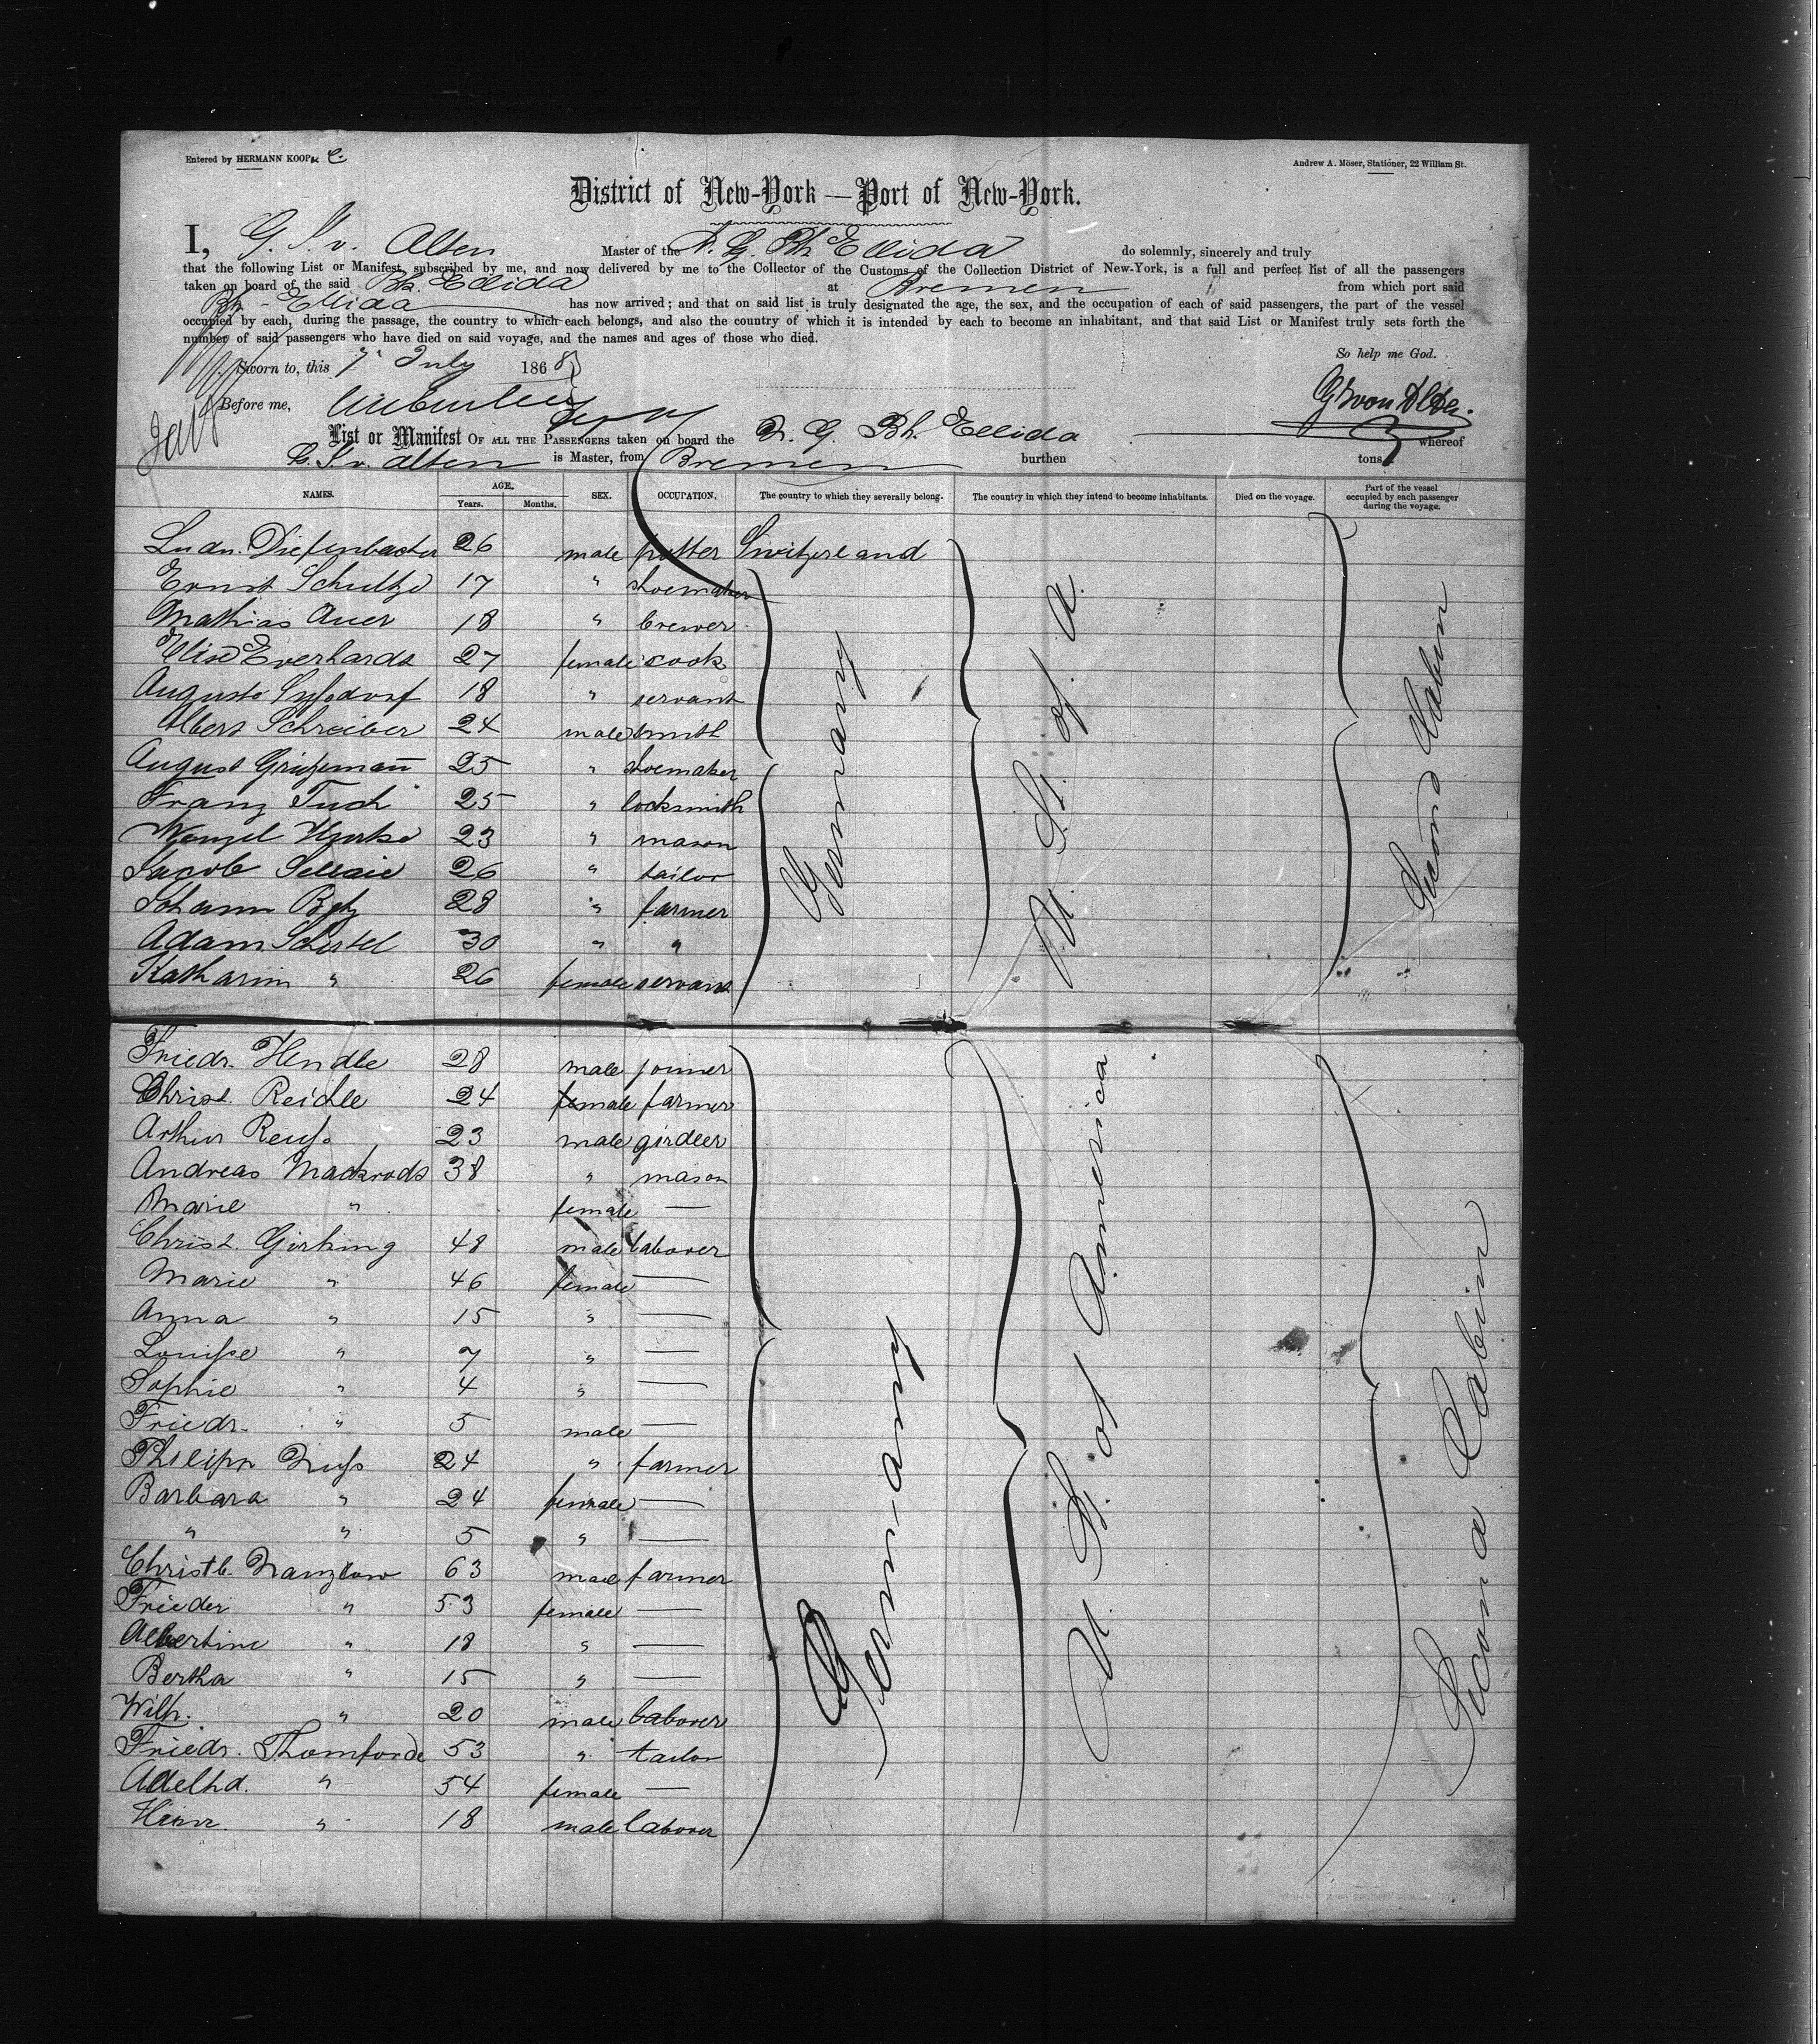 Entered by HERMANN KOOP & C.
Andrew A. Moser, Stationer, 22 William St.
District of New-York — Port of New-York.
I, G. S. v. Alten Master of the N. G. Bk Ellida do solemnly, sincerely and truly
that the following List or Manifest, subscribed by me, and now delivered by me to the Collector of the Customs of the Collection District of New-York, is a full and perfect list of all the passengers
taken on board of the said Bk. Ellida at Bremen from which port said
Bk - Ellida has now arrived; and that on said list is truly designated the age, the sex, and the occupation of each of said passengers, the part of the vessel
occupied by each, during the passage, the country to which each belongs, and also the country of which it is intended by each to become an inhabitant, and that said List or Manifest truly sets forth the
number of said passengers who have died on said voyage, and the names and ages of those who died.
So help me God.
Sworn to, this 7 July 1868
Before me,
List or Manifest OF ALL THE PASSENGERS taken on board the N. G. Bk. Ellida whereof
G. S. v. Alten is Master, from Bremen burthen tons
NAMES. AGE. Years. Months. SEX. OCCUPATION. The country to which they severally belong. The country in which they intend to become inhabitants. Died on the voyage. Part of the vessel occupied by each passenger during the voyage.
Ludw. Diefenbacher 26 male potter Switzerland
Ernst Schultze 17 " shoemaker
Mathias Auer 18 " brewer
Elise Everhards 27 female cook
Auguste 18 " servant
Albert Schreiber 24 male smith
August Grützemañ 25 " shoemaker
Franz Tuch 25 " locksmith
Wenzel 23 " mason
Jacob 26 " tailor
Johann 28 " farmer
Adam Schertel 30 " "
Katharin " 26 female servant
Germany
U. St. of A.
Second Cabin
Friedr. Hendle 28 male joiner
Christ. Reichle 24 male farmer
Arthur Reuſs 23 male girdler
Andreas Mackrodt 38 " mason
Marie " female —
Christ. Girking 48 male laborer
Marie " 46 female —
Anna " 15 " —
Louiſse " 7 " —
Sophie " 4 " —
Friedr. " 5 male —
Philipp Nuſs 24 " farmer
Barbara " 24 female —
" " 5 " —
Christb. Nanzlow 63 male farmer
Frieder " 53 female —
Albertine " 18 " —
Bertha " 15 " —
Wilh. " 20 male laborer
Friedr. Thomforde 53 " tailor
Adelhd. " 54 female —
Hinr. " 18 male laborer
Germany
U. S. of America
Second Cabin